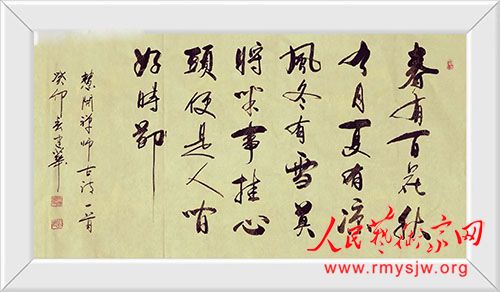 春有百花秋
有月夏有涼
風冬有雪莫
將閑事挂心
頭便是人間
好時節
慧開禅師古诗一首
癸卯建華
人民藝術家网
www.rmysjw.org